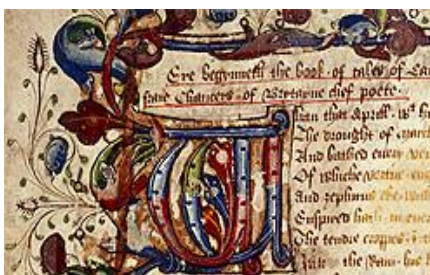 Ere begynneth the book of tales of Can
frare Chaucers of Brytayne chef poete
Whan that Aprill wt h
The drought of march
And bathed euery ve
Of whiche vertue en
And zephirus eke with
Enspired hath in euer
The tendre croppes